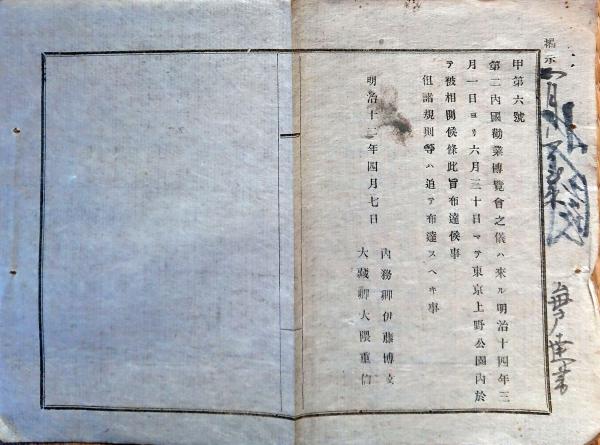 揭示
毎戸達第
甲第六號
第二内國勸業博覽會之儀ハ来ル明治十四年三
月一日ヨリ六月三十日マテ東京上野公園内於
テ被相開候條此旨布達候事
但諸規則等ハ追テ布達スヘキ事
明治十二年四月七日
内務卿伊藤博文
大藏卿大隈重信